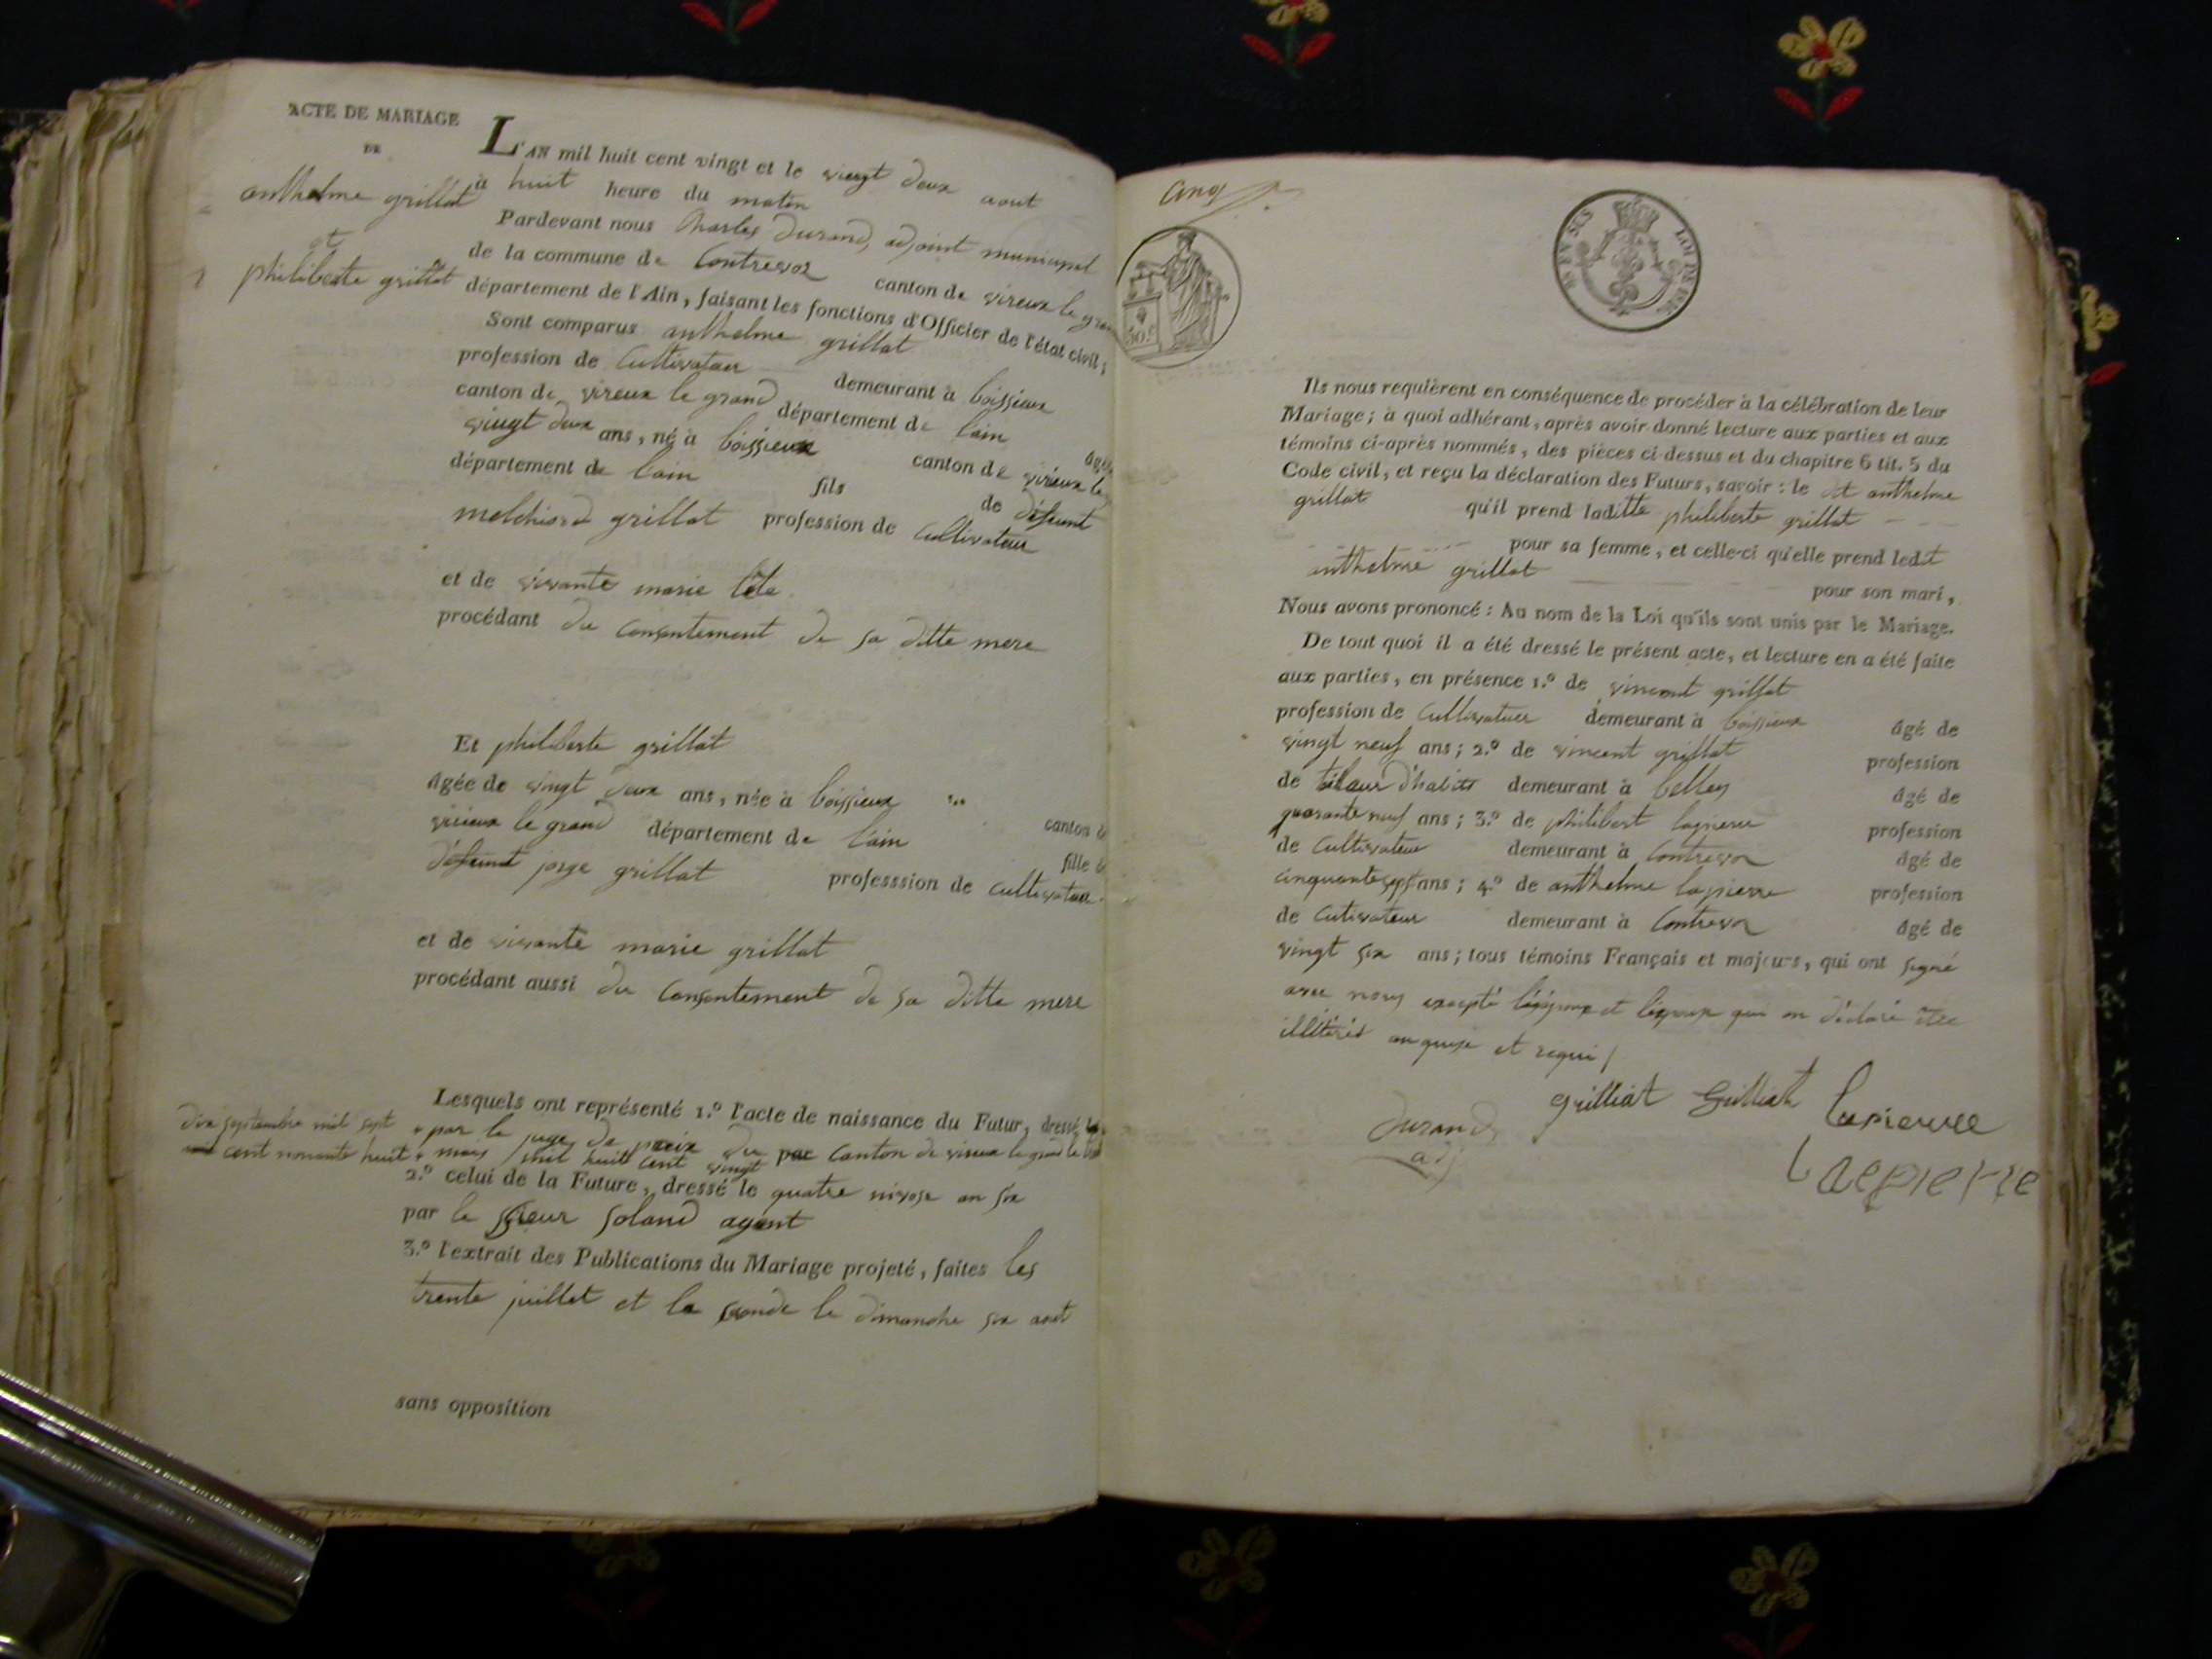 ACTE DE MARIAGE
DE
anthelme grillat
et
philiberte grillat
L'AN mil huit cent vingt et le vingt deux aout
à huit heure du matin
Pardevant nous Charles Durand, adjoint municipal
de la commune de Contrevoz canton de virieux le gran
département de l'Ain, faisant les fonctions d'Officier de l'état civil;
Sont comparus anthelme grillat
profession de Cultivateur demeurant à boissieux
canton de virieux le grand département de l'ain âgé
vingt deux ans, né à boissieux canton de virieux le
département de l'ain fils de défeunt
melchiord grillat profession de Cultivateur
et de vivante marie
procédant du Consentement de sa ditte mere
Et philiberte grillat
âgée de vingt deux ans, née à boissieux canton d
virieux le grand département de l'ain fille d
défeunt jorge grillat professsion de cultivateur
et de vivante marie grillat
procédant aussi du Consentement de sa ditte mere
Lesquels ont représenté 1.º l'acte de naissance du Futur, dressé le
dix septembre mil sept
cent nonante huit
par le juge de paix du par Canton de virieux le grand le
mars mil huit cent vingt
2.º celui de la Future, dressé le quatre nivose an six
par le sieur Soland agent
3.º l'extrait des Publications du Mariage projeté, faites les
trente juillet et la seconde le dimanche six aout
sans opposition
Cinq
50.c
Ils nous requièrent en conséquence de procéder à la célébration de leur
Mariage; à quoi adhérant, après avoir donné lecture aux parties et aux
témoins ci-après nommés, des pièces ci-dessus et du chapitre 6 tit. 5 du
Code civil, et reçu la déclaration des Futurs, savoir: le dit anthelme
grillat qu'il prend laditte philiberte grillat
pour sa femme, et celle-ci qu'elle prend ledit
anthelme grillat pour son mari,
Nous avons prononcé: Au nom de la Loi qu'ils sont unis par le Mariage.
De tout quoi il a été dressé le présent acte, et lecture en a été faite
aux parties, en présence 1.º de vincent grillat
profession de Cultivateur demeurant à boissieux âgé de
vingt neuf ans; 2.º de vincent grillat profession
de d'habits demeurant à belley âgé de
quarante neuf ans; 3.º de philibert lapierre profession
de Cultivateur demeurant à Contrevoz âgé de
cinquante sept ans; 4.º de anthelme lapierre profession
de Cutivateur demeurant à Contrevoz âgé de
vingt six ans; tous témoins Français et majeurs, qui ont signé
avec nous excepté et qui on déclaré être
illitérés enquise et requi
grilliat Grilliat lapierre
Durand
adj
Laepierre